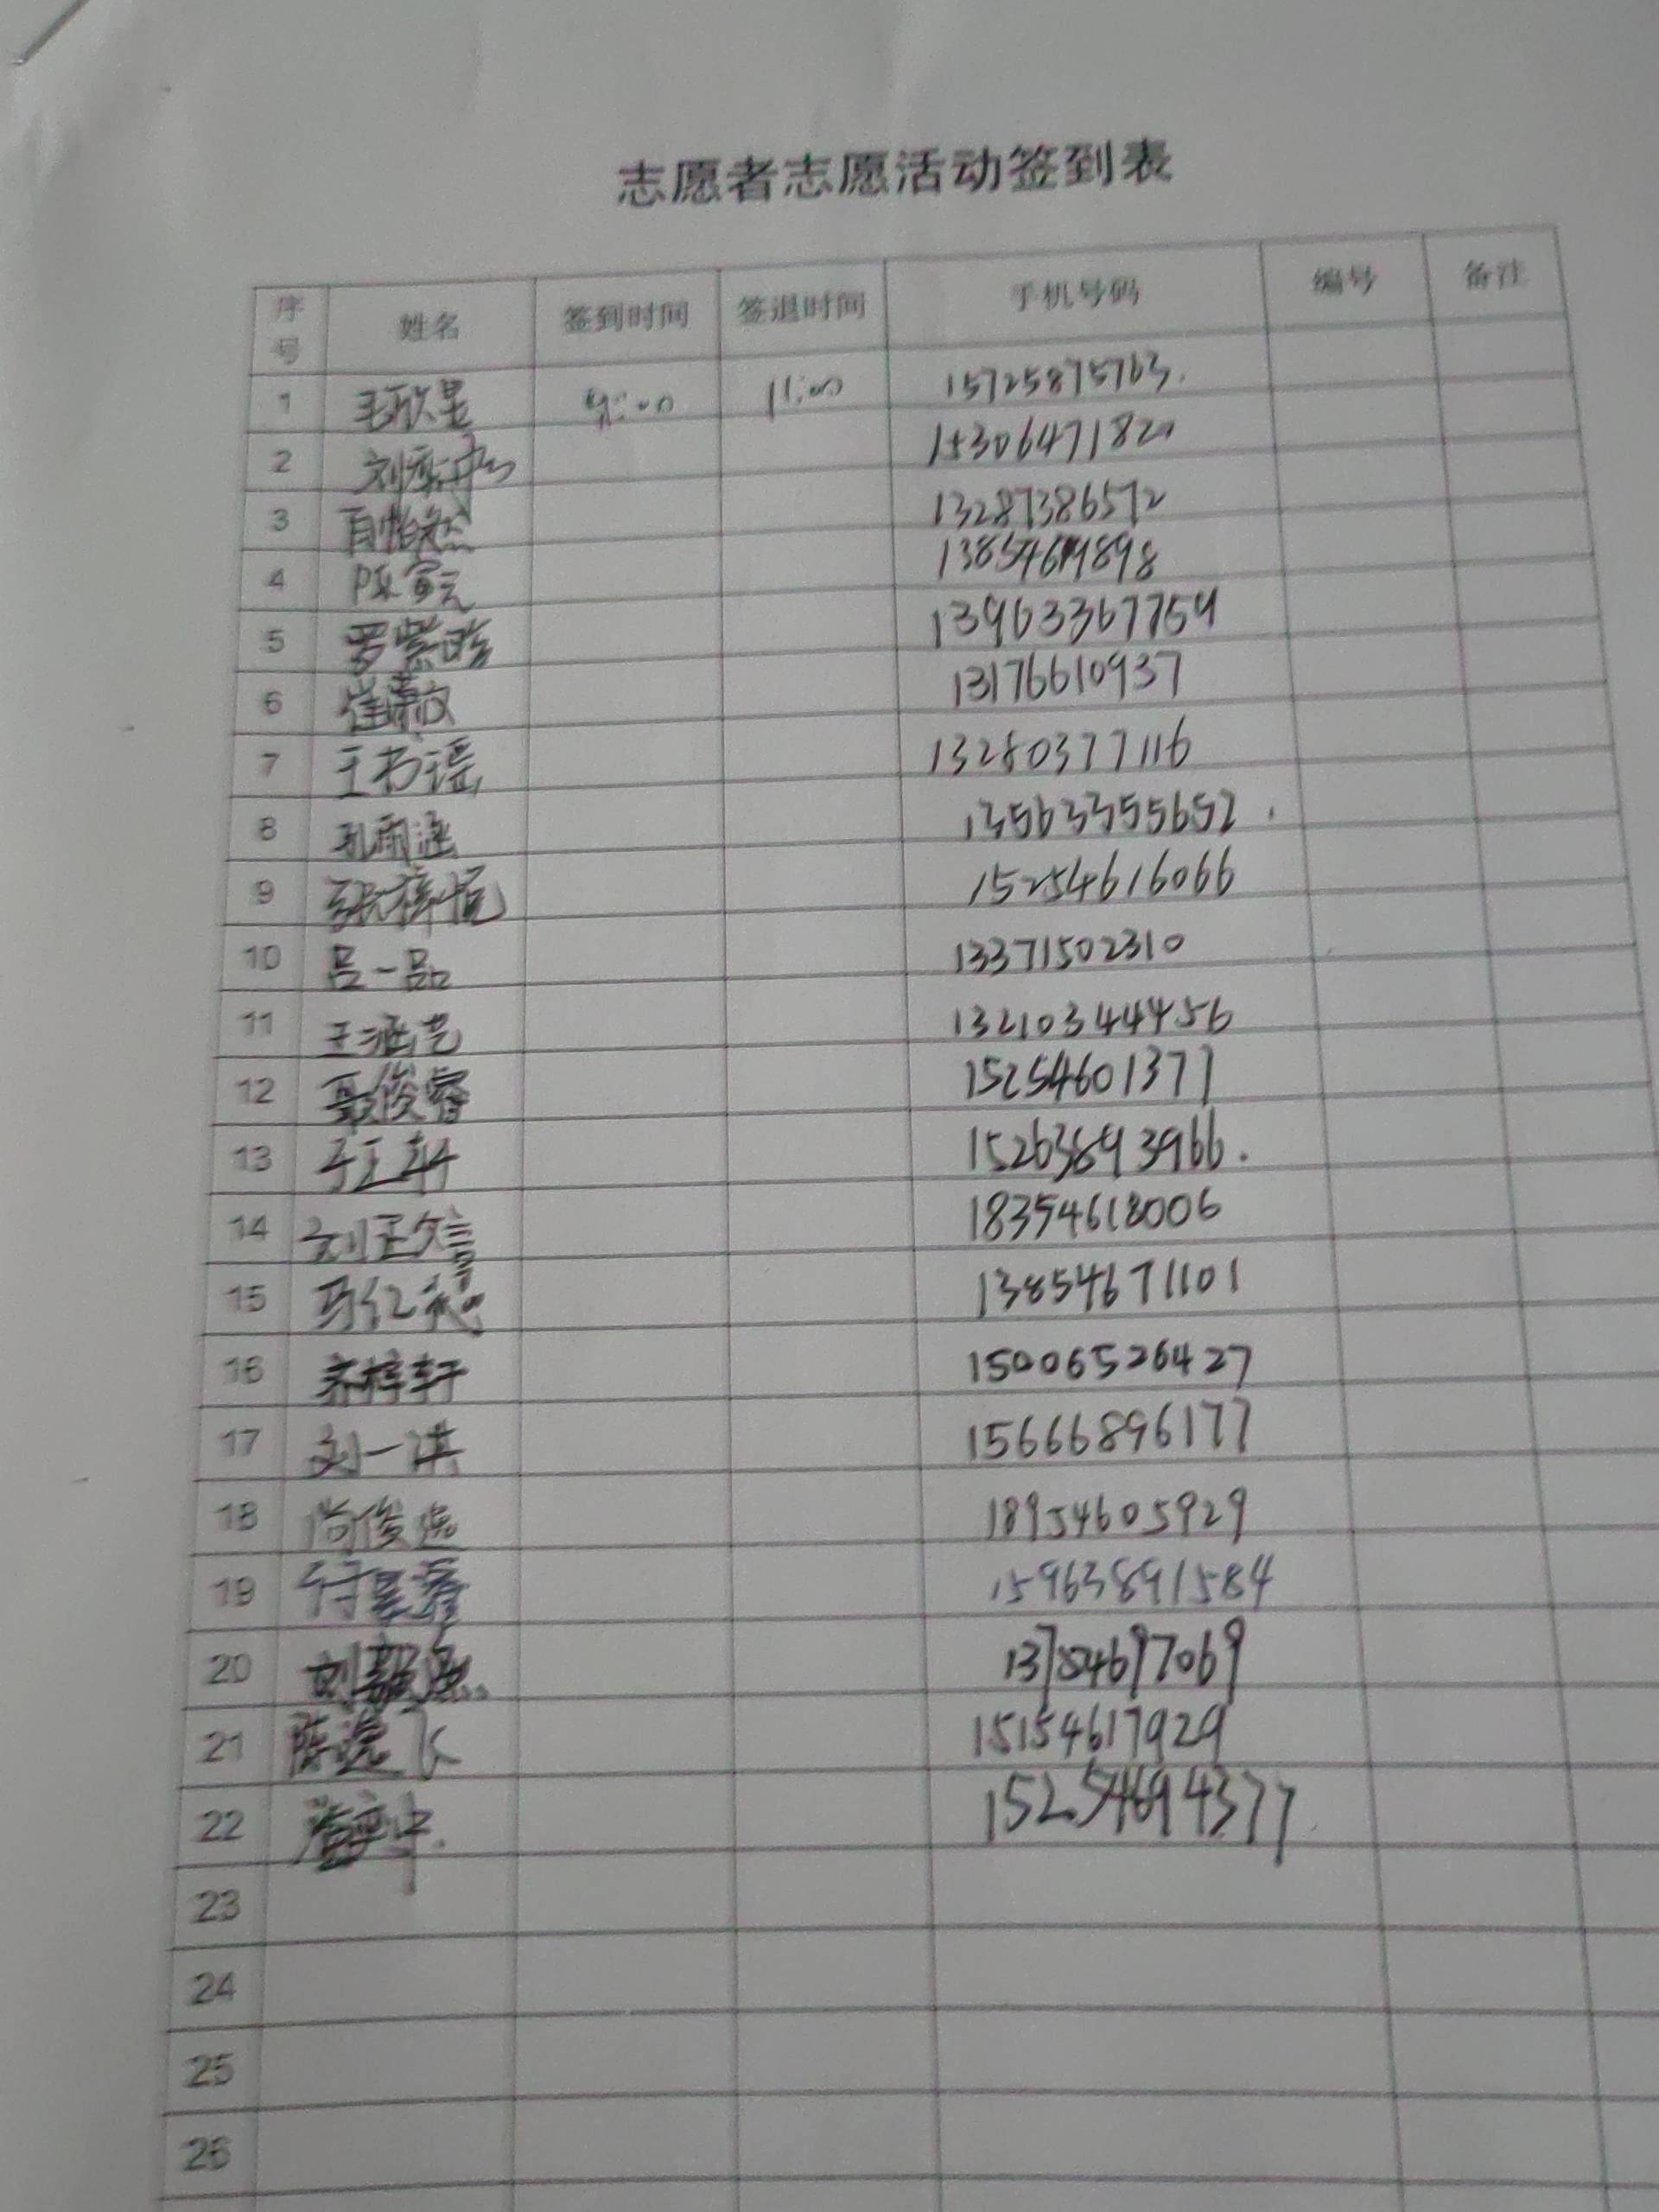 志愿者志愿活动签到表
序号 姓名 签到时间 签退时间 手机号码 编号 备注
1 毛欣昱 9:00 11:00 15725875763.
2 1530647182
3 13287386572
4 陈 138546 9898
5 罗紫晗 13963367759
6 崔 13176610937
7 王书瑶 13280377116
8 孔雨涵 13563355652
9 张梓恒 15254616066
10 吕一品 13371502310
11 王涵艺 13210344456
12 聂俊睿 15254601377
13 于 轩 15263893966.
14 刘 18354618006
15 13854671101
16 齐梓轩 15006526427
17 刘一 15666896177
18 尚俊逸 18954605929
19 付 15963891584
20 刘 697069
21 陈 飞 15154617929
22 15254694377
23
24
25
26